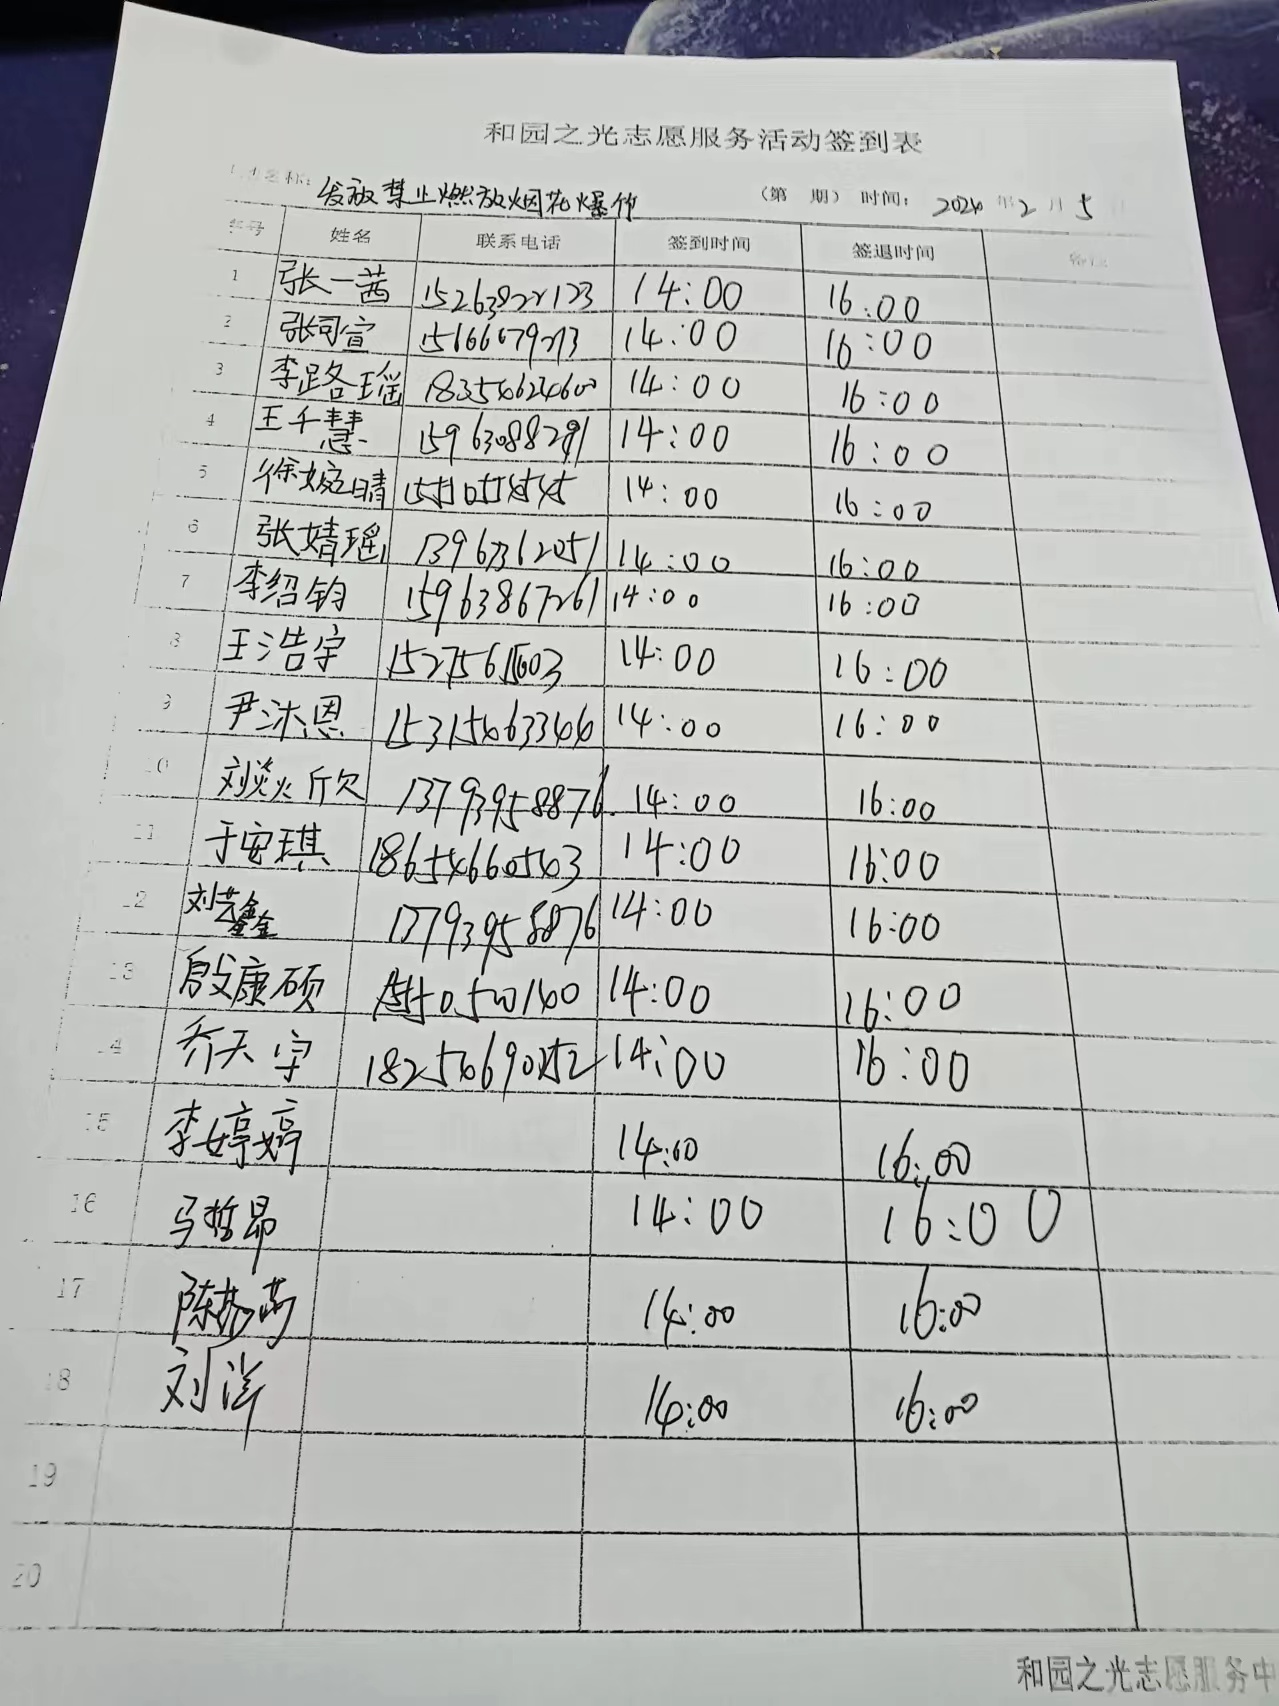 和园之光志愿服务活动签到表
名称: 发放禁止燃放烟花爆竹 (第 期) 时间: 2024年2月5
序号 姓名 联系电话 签到时间 签退时间 备注
1 张一茜 14:00 16:00
2 张司宣 14:00 16:00
3 李路瑶 18354624600 14:00 16:00
4 王千慧 15963088291 14:00 16:00
5 徐婉晴 14:00 16:00
6 张婧瑶 14:00 16:00
7 李绍钧 15963867261 14:00 16:00
8 王浩宇 14:00 16:00
9 尹沐恩 15315463344 14:00 16:00
10 刘焱欣 13793958876 14:00 16:00
11 于安琪 18654660543 14:00 16:00
12 刘艺鑫 13793958876 14:00 16:00
13 殷康硕 14:00 16:00
14 乔天宇 14:00 16:00
15 李婷婷 14:00 16:00
16 马哲昂 14:00 16:00
17 14:00 16:00
18 刘洋 14:00 16:00
19
20
和园之光志愿服务中